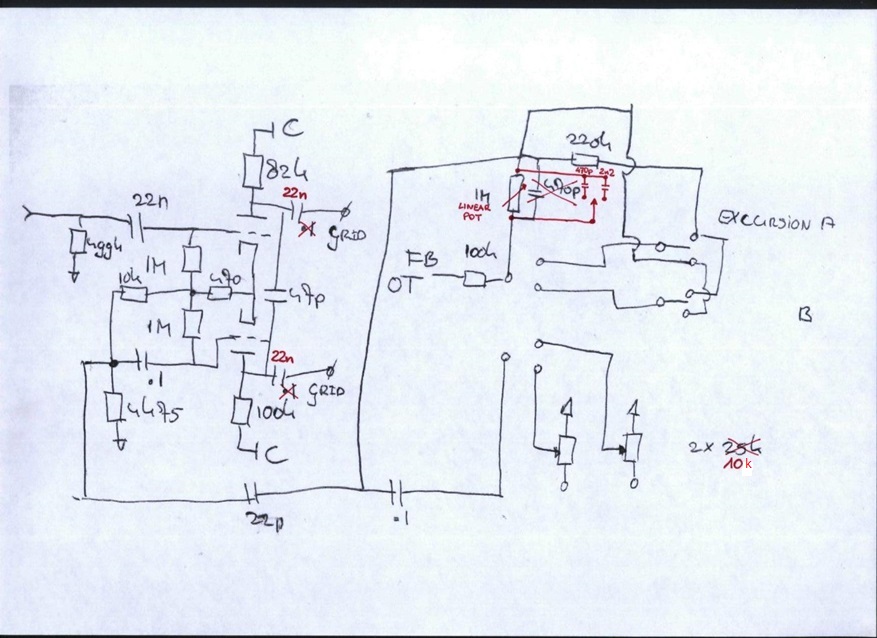 C
82k
22n
22n
GRID
499k
1M
10k
470
47p
1M
.1
22n
GRID
4k75
100k
C
22p
.1
220k
470p
2n2
1M
470p
LINEAR
POT
FB
100k
OT
EXCURSION A
B
2x 25k
10k